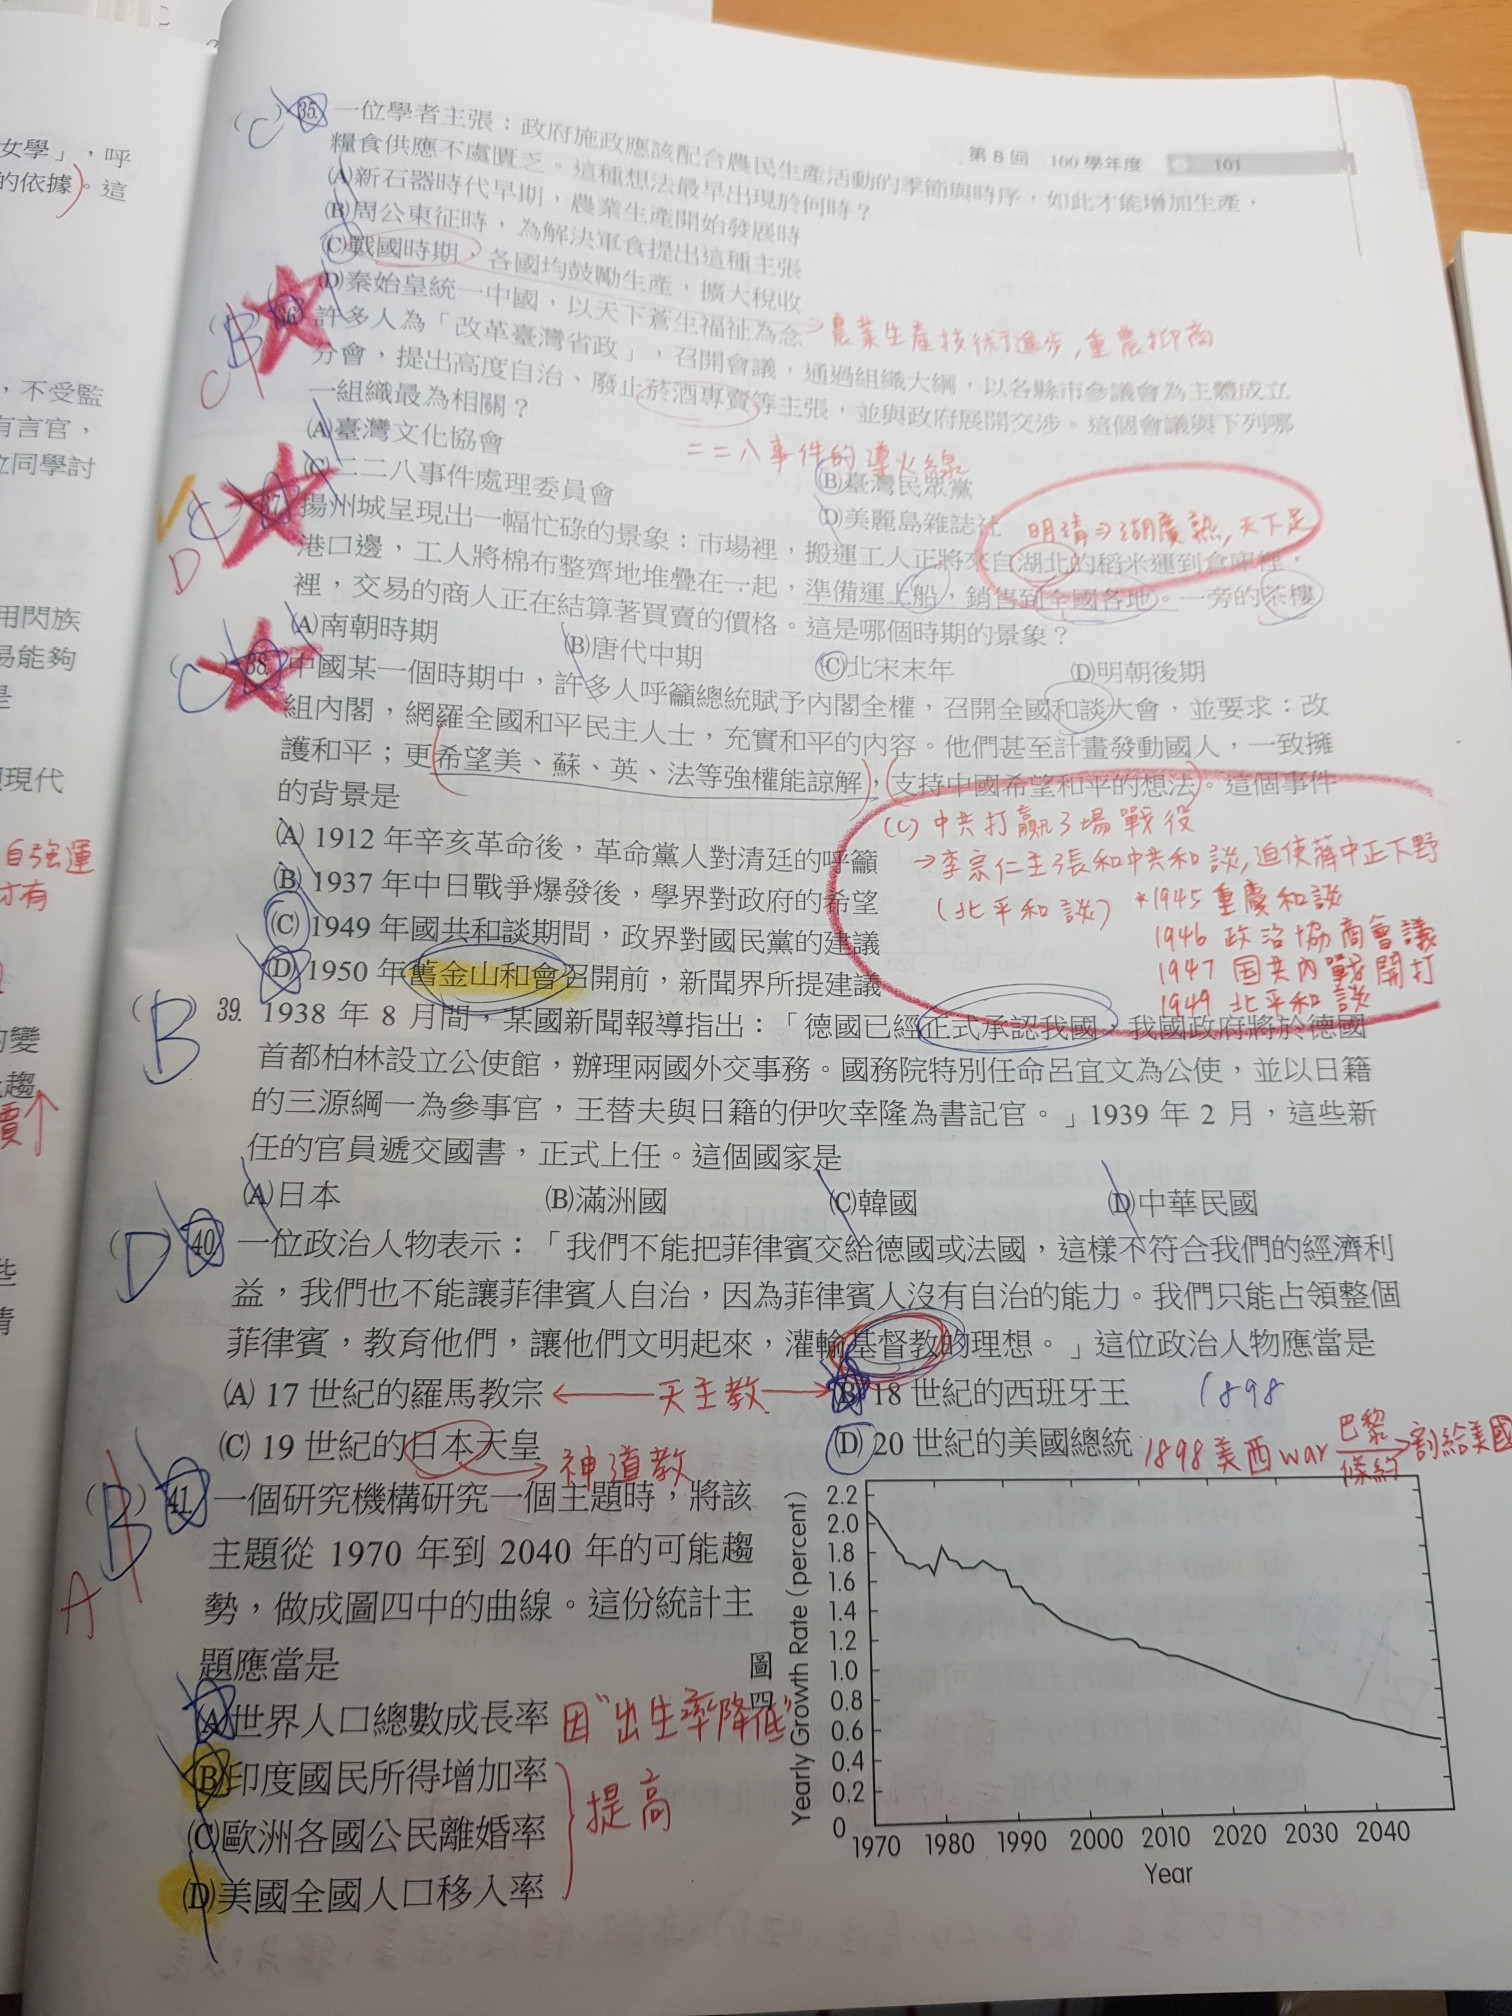 第 8 回 100 學年度 101
(C) 35. 一位學者主張：政府施政應該配合農民生產活動的季節與時序，如此才能增加生產，
糧食供應不虞匱乏。這種想法最早出現於何時？
(A)新石器時代早期，農業生產開始發展時
(B)周公東征時，為解決軍食提出這種主張
(C)戰國時期，各國均鼓勵生產，擴大稅收
(D)秦始皇統一中國，以天下蒼生福祉為念
→農業生產技術進步,重農抑商
(B) C 36. 許多人為「改革臺灣省政」，召開會議，通過組織大綱，以各縣市參議會為主體成立
分會，提出高度自治、廢止菸酒專賣等主張，並與政府展開交涉。這個會議與下列哪
一組織最為相關？
二二八事件的導火線
(A)臺灣文化協會
(B)臺灣民眾黨
(C)二二八事件處理委員會
(D)美麗島雜誌社
明清⇒湖廣熟,天下足
(C) D 37. 揚州城呈現出一幅忙碌的景象：市場裡，搬運工人正將來自湖北的稻米運到倉庫裡，
港口邊，工人將棉布整齊地堆疊在一起，準備運上船，銷售到全國各地。一旁的茶樓
裡，交易的商人正在結算著買賣的價格。這是哪個時期的景象？
(A)南朝時期 (B)唐代中期 (C)北宋末年 (D)明朝後期
(C) 38. 中國某一個時期中，許多人呼籲總統賦予內閣全權，召開全國和談大會，並要求：改
組內閣，網羅全國和平民主人士，充實和平的內容。他們甚至計畫發動國人，一致擁
護和平；更希望美、蘇、英、法等強權能諒解，支持中國希望和平的想法。這個事件
的背景是
(A) 1912 年辛亥革命後，革命黨人對清廷的呼籲
(B) 1937 年中日戰爭爆發後，學界對政府的希望
(C) 1949 年國共和談期間，政界對國民黨的建議
(D) 1950 年舊金山和會召開前，新聞界所提建議
(C) 中共打贏3場戰役
→李宗仁主張和中共和談,迫使蔣中正下野
(北平和談) *1945 重慶和談
1946 政治協商會議
1947 国共內戰開打
1949 北平和談
(B) 39. 1938 年 8 月間，某國新聞報導指出：「德國已經正式承認我國，我國政府將於德國
首都柏林設立公使館，辦理兩國外交事務。國務院特別任命呂宜文為公使，並以日籍
的三源綱一為參事官，王替夫與日籍的伊吹幸隆為書記官。」1939 年 2 月，這些新
任的官員遞交國書，正式上任。這個國家是
(A)日本 (B)滿洲國 (C)韓國 (D)中華民國
(D) 40. 一位政治人物表示：「我們不能把菲律賓交給德國或法國，這樣不符合我們的經濟利
益，我們也不能讓菲律賓人自治，因為菲律賓人沒有自治的能力。我們只能占領整個
菲律賓，教育他們，讓他們文明起來，灌輸基督教的理想。」這位政治人物應當是
(A) 17 世紀的羅馬教宗 ←天主教→ (B) 18 世紀的西班牙王 1898
(C) 19 世紀的日本天皇 →神道教 (D) 20 世紀的美國總統 1898 美西war 巴黎條約→割給美國
(B) A 41. 一個研究機構研究一個主題時，將該
主題從 1970 年到 2040 年的可能趨
勢，做成圖四中的曲線。這份統計主
題應當是
(A)世界人口總數成長率 因"出生率降低"
(B)印度國民所得增加率
(C)歐洲各國公民離婚率
(D)美國全國人口移入率
提高
圖四
Yearly Growth Rate (percent)
2.2
2.0
1.8
1.6
1.4
1.2
1.0
0.8
0.6
0.4
0.2
0
1970 1980 1990 2000 2010 2020 2030 2040
Year
女學」，呼
的依據)。這
，不受監
有言官，
位同學討
用閃族
易能夠
是
現代
自強運
才有
的變
趨
價↑